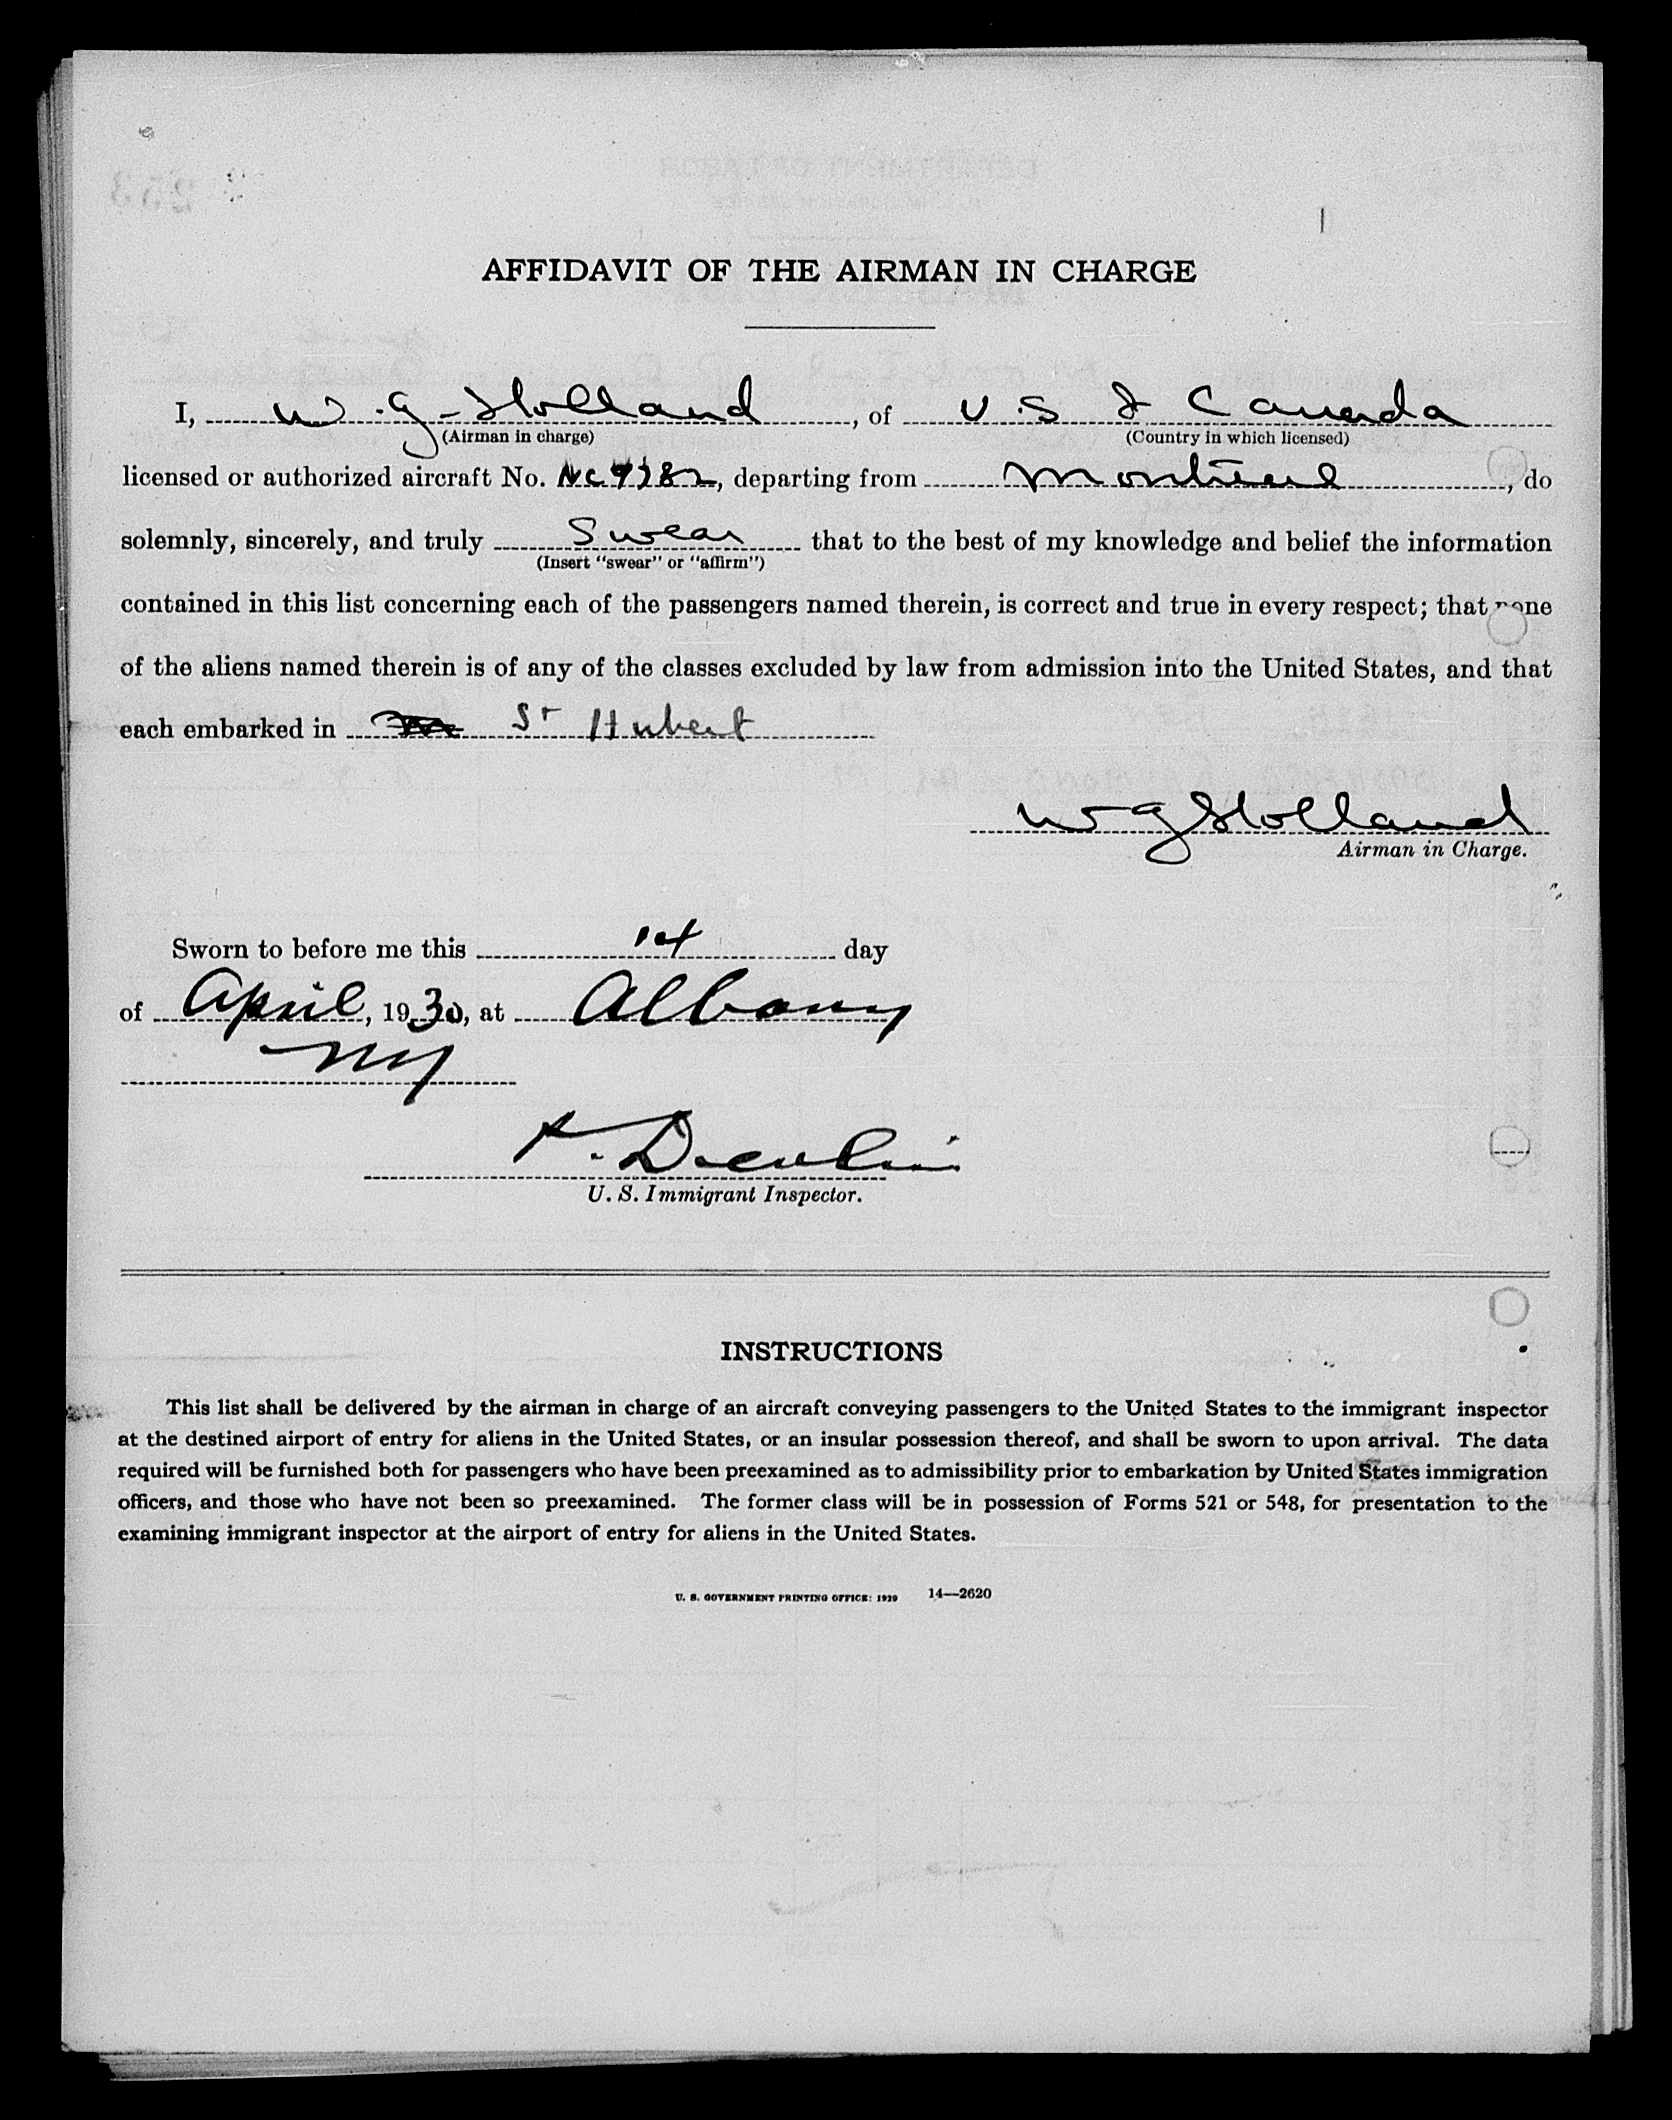 AFFIDAVIT OF THE AIRMAN IN CHARGE
I, W. G. Holland, of U.S & Canada
(Airman in charge) (Country in which licensed)
licensed or authorized aircraft No. NC 9782, departing from Montreal, do
solemnly, sincerely, and truly Swear that to the best of my knowledge and belief the information
(Insert "swear" or "affirm")
contained in this list concerning each of the passengers named therein, is correct and true in every respect; that none
of the aliens named therein is of any of the classes excluded by law from admission into the United States, and that
each embarked in St Hubert
W G Holland
Airman in Charge.
Sworn to before me this 14 day
of April, 1930, at Albany
NY
Devlin
U. S. Immigrant Inspector.
INSTRUCTIONS
This list shall be delivered by the airman in charge of an aircraft conveying passengers to the United States to the immigrant inspector
at the destined airport of entry for aliens in the United States, or an insular possession thereof, and shall be sworn to upon arrival. The data
required will be furnished both for passengers who have been preexamined as to admissibility prior to embarkation by United States immigration
officers, and those who have not been so preexamined. The former class will be in possession of Forms 521 or 548, for presentation to the
examining immigrant inspector at the airport of entry for aliens in the United States.
U. S. GOVERNMENT PRINTING OFFICE: 1929 14—2620